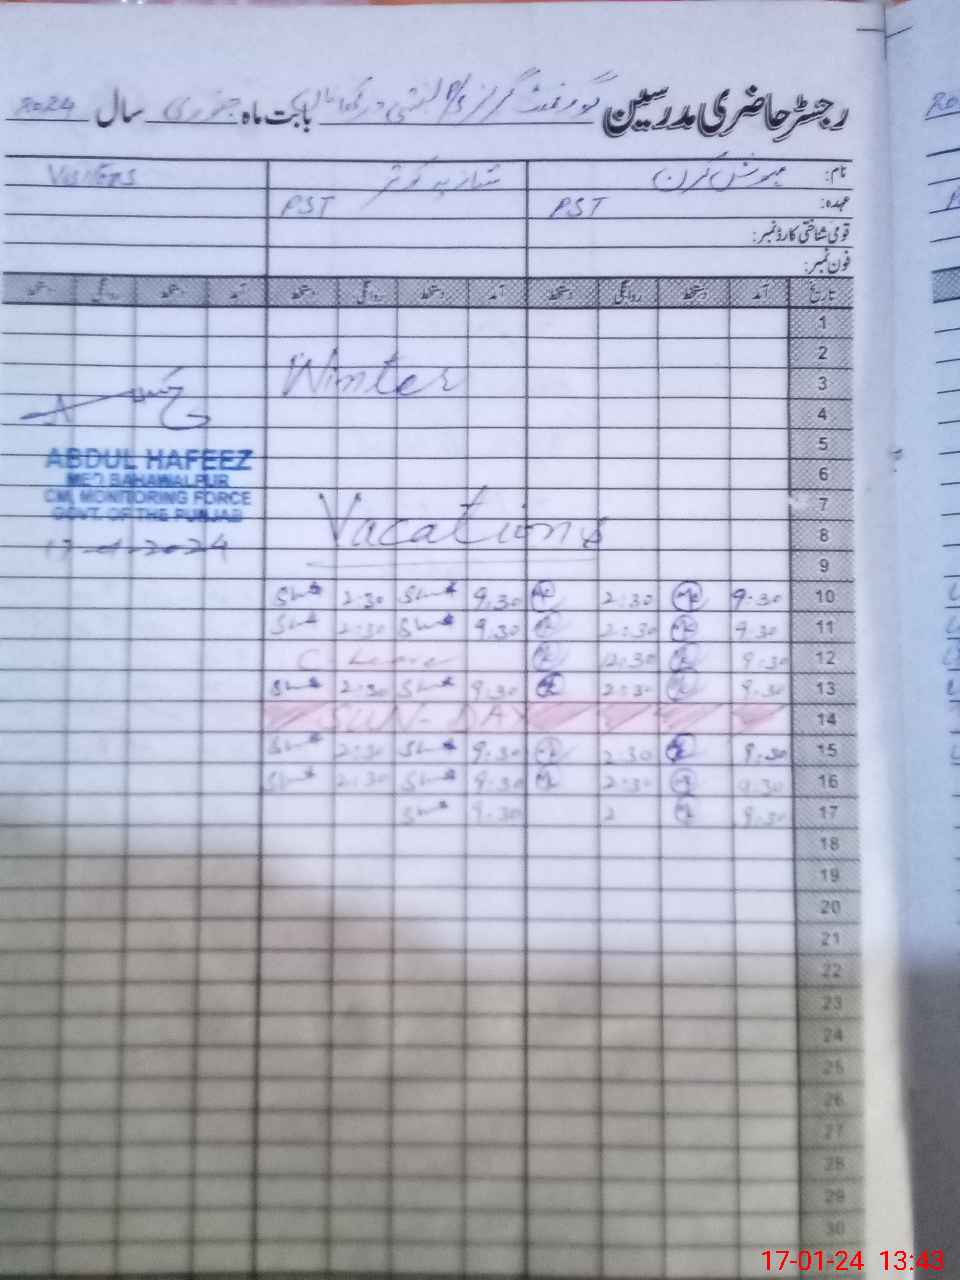 رجسٹر حاضری مدرسین گورنمنٹ گرلز P/S بستی بابت ماہ جنوری سال 2024
نام: مہوش کرن شازیہ کوثر Visiters
عہدہ: PST PST
قومی شناختی کارڈ نمبر:
فون نمبر:
تاریخ آمد دستخط روانگی دستخط آمد دستخط روانگی دستخط آمد دستخط روانگی دستخط
1
2
3 Winter
4
5
ABDUL HAFEEZ
6
MEO BAHAWALPUR
CM, MONITORING FORCE
7
GOVT. OF THE PUNJAB
8 Vacations
17-01-2024
9
10 9:30 2:30 9:30 2:30
11 9:30 2:30 9:30 2:30
12 9:30 12:30 C-Leave
13 9:30 2:30 9:30 2:30
14 SUN-DAY
15 9:30 2:30 9:30 2:30
16 9:30 2:30 9:30 2:30
17 9:30 2 9:30
18
19
20
21
22
23
24
25
26
27
28
29
30
17-01-24 13:43